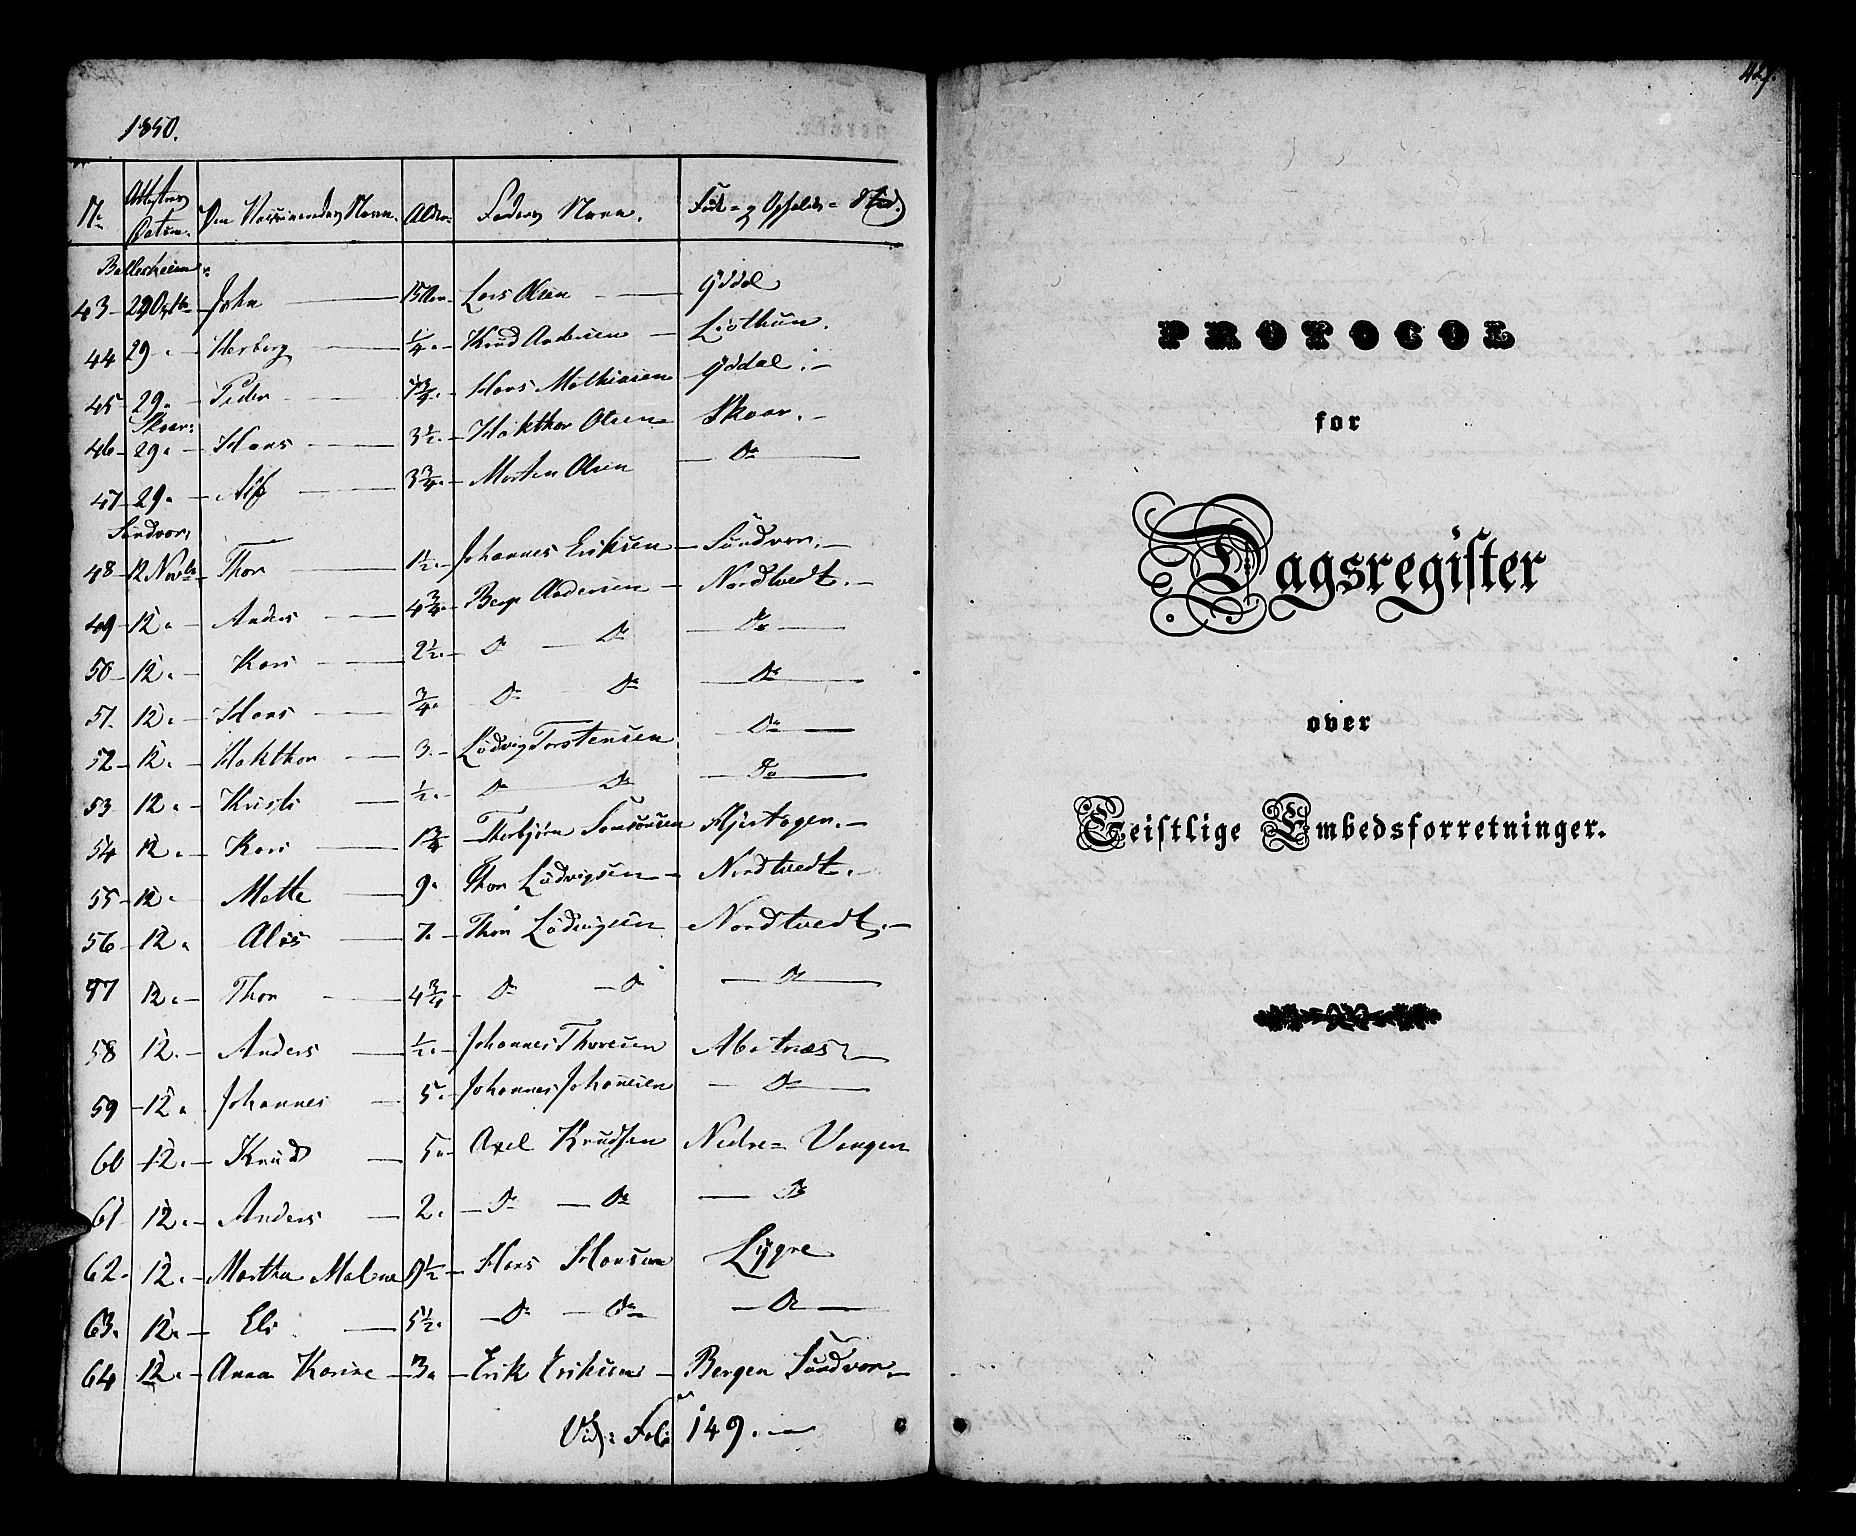 1850.
No Attestens Datum. Den Vaccineredes Navn. Alder. Faders Navn. Føde- og Opholds-Sted.
Ballesheim:
43 29 Octb John 15 Aar Lars Olsen Yddal
44 29 " Herborg 1/4 " Knud Andersen Liothun.
45 29 " Peder 7 3/4 " Hans Mathiasen Yddal.
Skaar:
46 29 " Hans 3 1/2 " Hakthor Olsen Skaar.
47 29 " Alf 3 3/4 " Morten Olsen Do
Sundvor:
48 12 Novbr Thor 1 1/2 " Johannes Eriksen Sundvor.
49 12 " Anders 4 3/4 " Berge Andersen Nordtvedt.
50 12 " Kari 2 1/2 " Do Do Do
51 12 " Hans 3/4 " Do Do Do
52 12 " Hakthor 3 " Ludvig Torstensen Do
53 12 " Kristi 1/2 " Do Do Do
54 12 " Kari 1 3/4 Thorbjørn Samsonsen
55 12 " Mette 9 " Thor Ludvigsen Nordtvedt.
56 12 " 7 " Thor Ludvigsen Nordtvedt.
57 12 " Thor 4 3/4 Do Do Do
58 12 " Anders 1/2 " Johannes Thoresen
59 12 " Johannes 5 " Johannes Johannesen Do
60 12 " Knud 5 " Axel Knudsen Nedre-Vangen
61 12 " Anders 2 " Do Do Do
62 12 " Martha Malena 9 1/2 Hans Hansen Lygre
63 12 " Eli 5 1/2 " Do Do Do
64 12 " Anna Karine 3 " Erik Eriksen Bergen Sundvor
Vid: Fol: 149.
427.
PROTOCOL
for
Dagsregister
over
Geistlige Embedsforretninger.